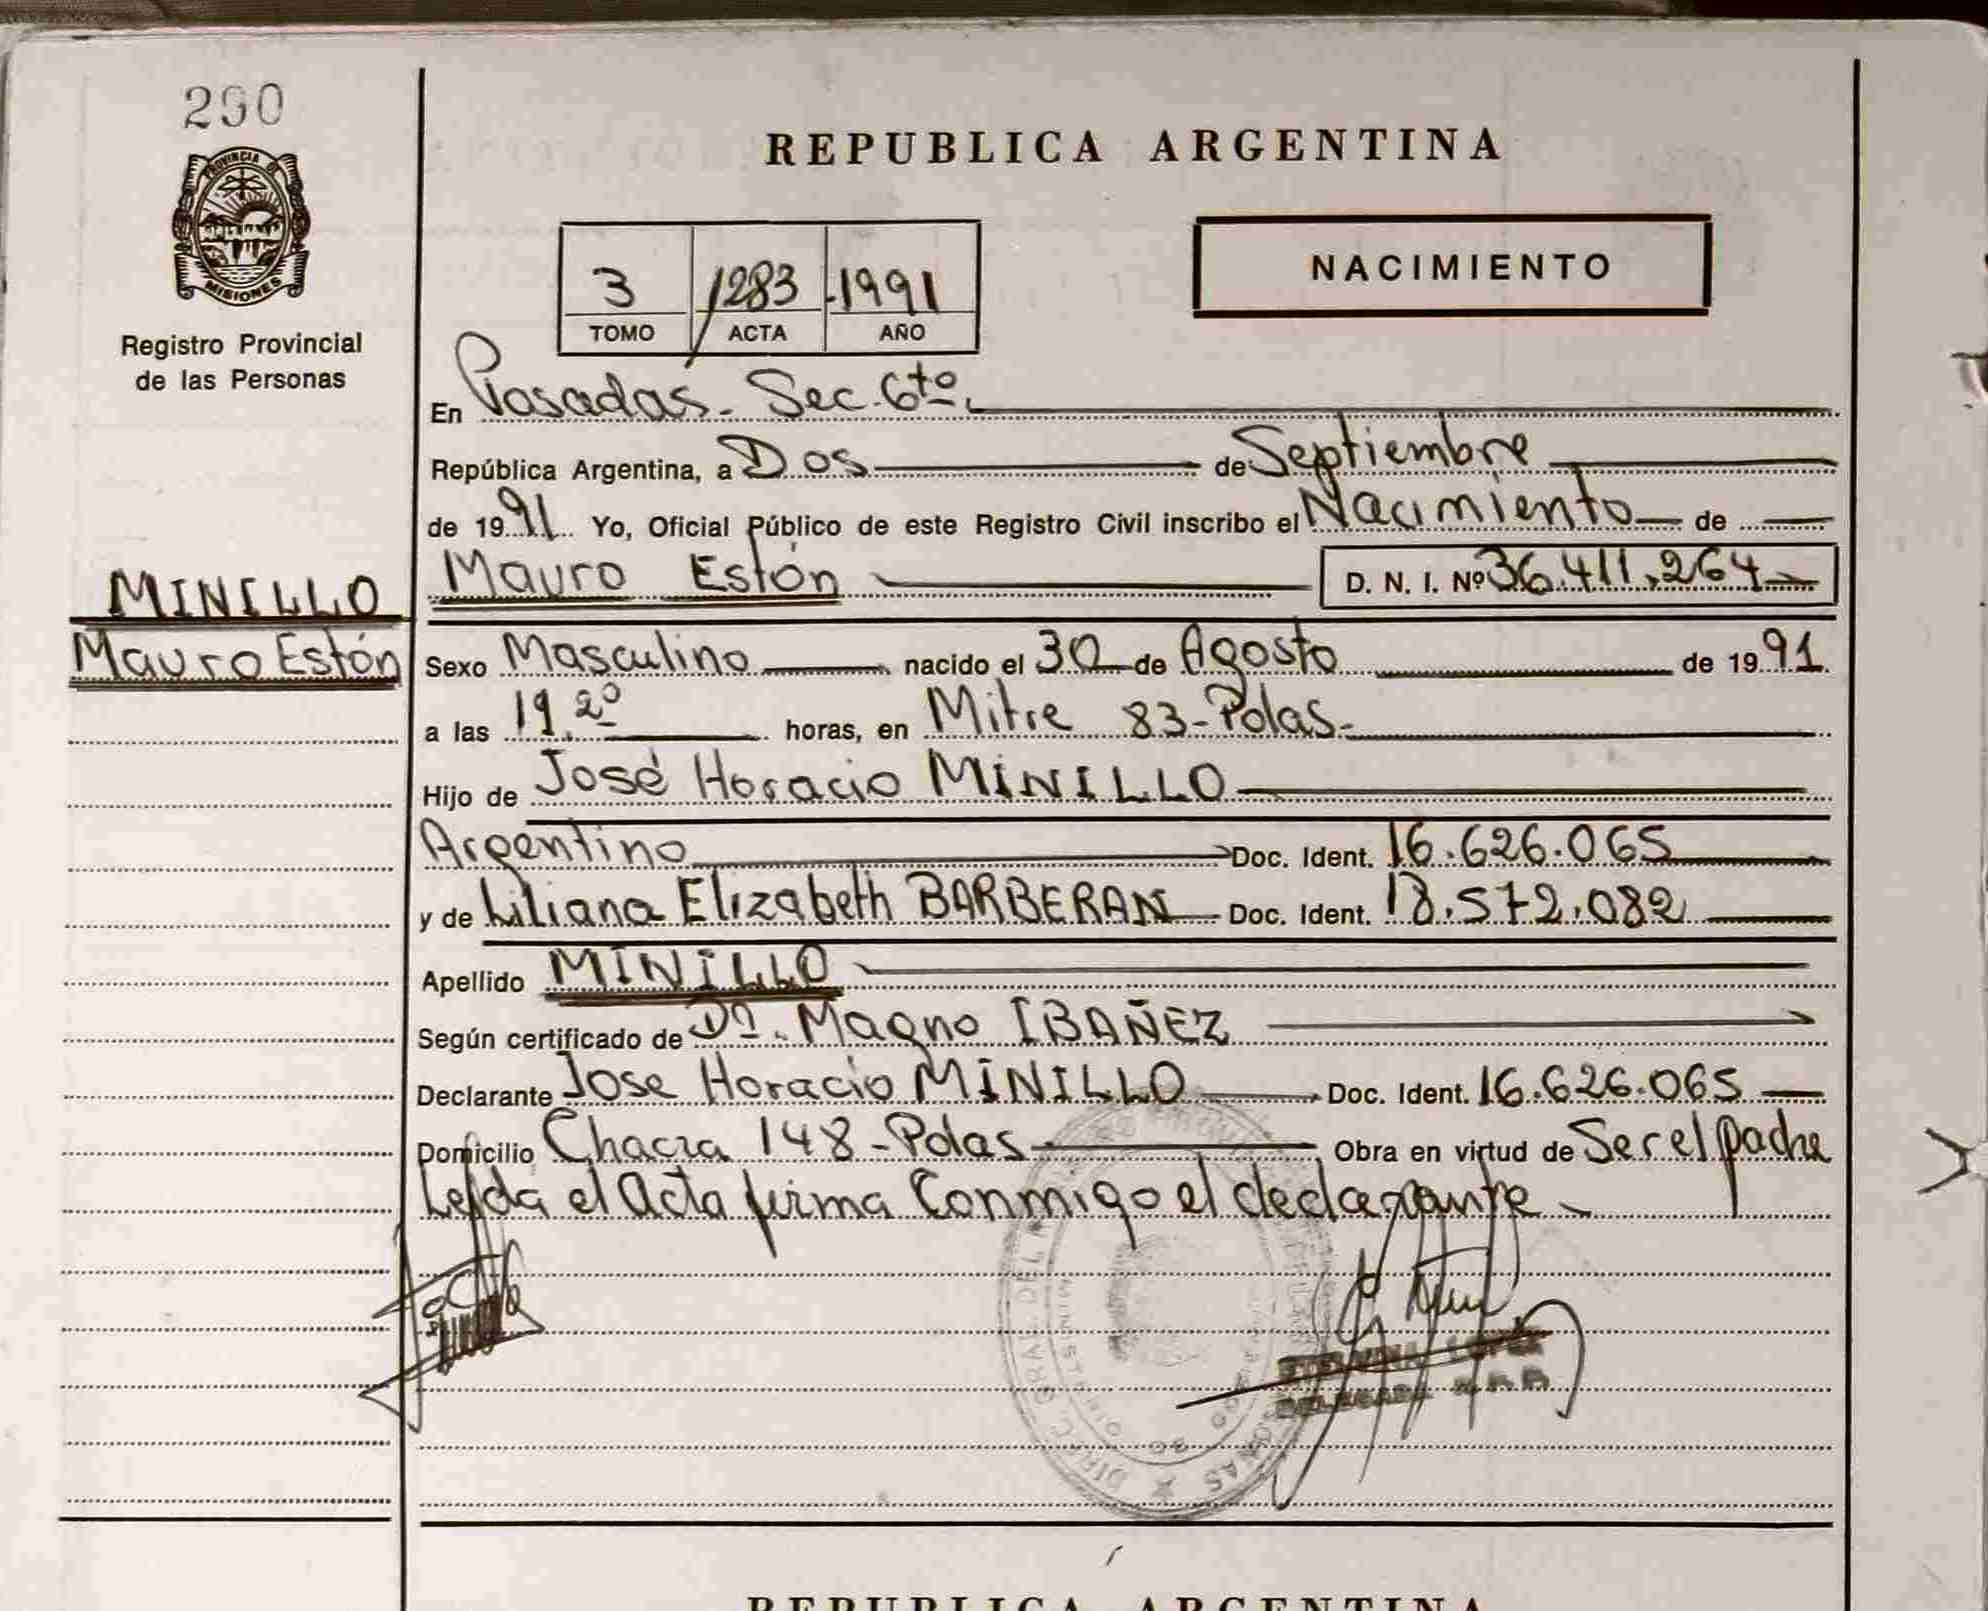 290
PROVINCIA DE
MISIONES
Registro Provincial
de las Personas
REPUBLICA ARGENTINA
NACIMIENTO
3 1283 1991
TOMO ACTA AÑO
En Posadas. Sec. 6to.
República Argentina, a Dos de Septiembre
de 1991 Yo, Oficial Público de este Registro Civil inscribo el Nacimiento de
Mauro Estón D. N. I. Nº 36.411.264
MINILLO
Mauro Estón
Sexo Masculino nacido el 30 de Agosto de 1991.
a las 19.20 horas, en Mitre 83-Pdas.
Hijo de José Horacio MINILLO
Argentino Doc. Ident. 16.626.065
y de Liliana Elizabeth BARBERAN Doc. Ident. 18.572.082
Apellido MINILLO
Según certificado de Dr. Magno IBAÑEZ
Declarante Jose Horacio MINILLO Doc. Ident. 16.626.065
Domicilio Chacra 148-Pdas Obra en virtud de Ser el padre
Leída el Acta firma Conmigo el declarante
LOPEZ
DELEGADA
REPUBLICA ARGENTINA